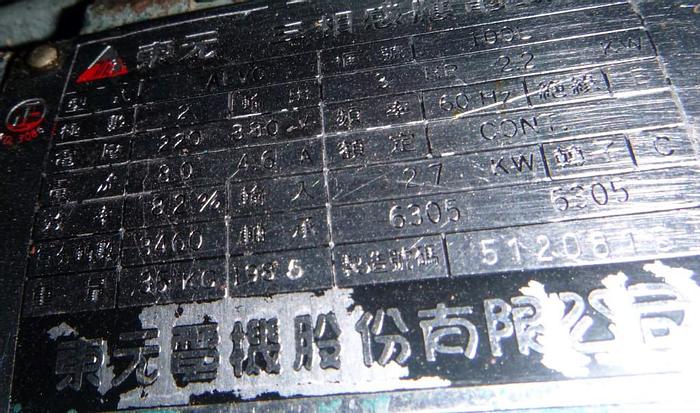 東元 三相感應電
型式 AEVC 框號 100L
極數 2 輸出 3 HP 2.2 KW
電壓 220 380 V 頻率 60 Hz 絕緣 E
電流 8.0 4.6 A 額定 CONT.
效率 82% 輸入 2.7 KW C
3460 軸承 6305 6305
重量 35 KG 1985 製造號碼
東元電機股份有限公司